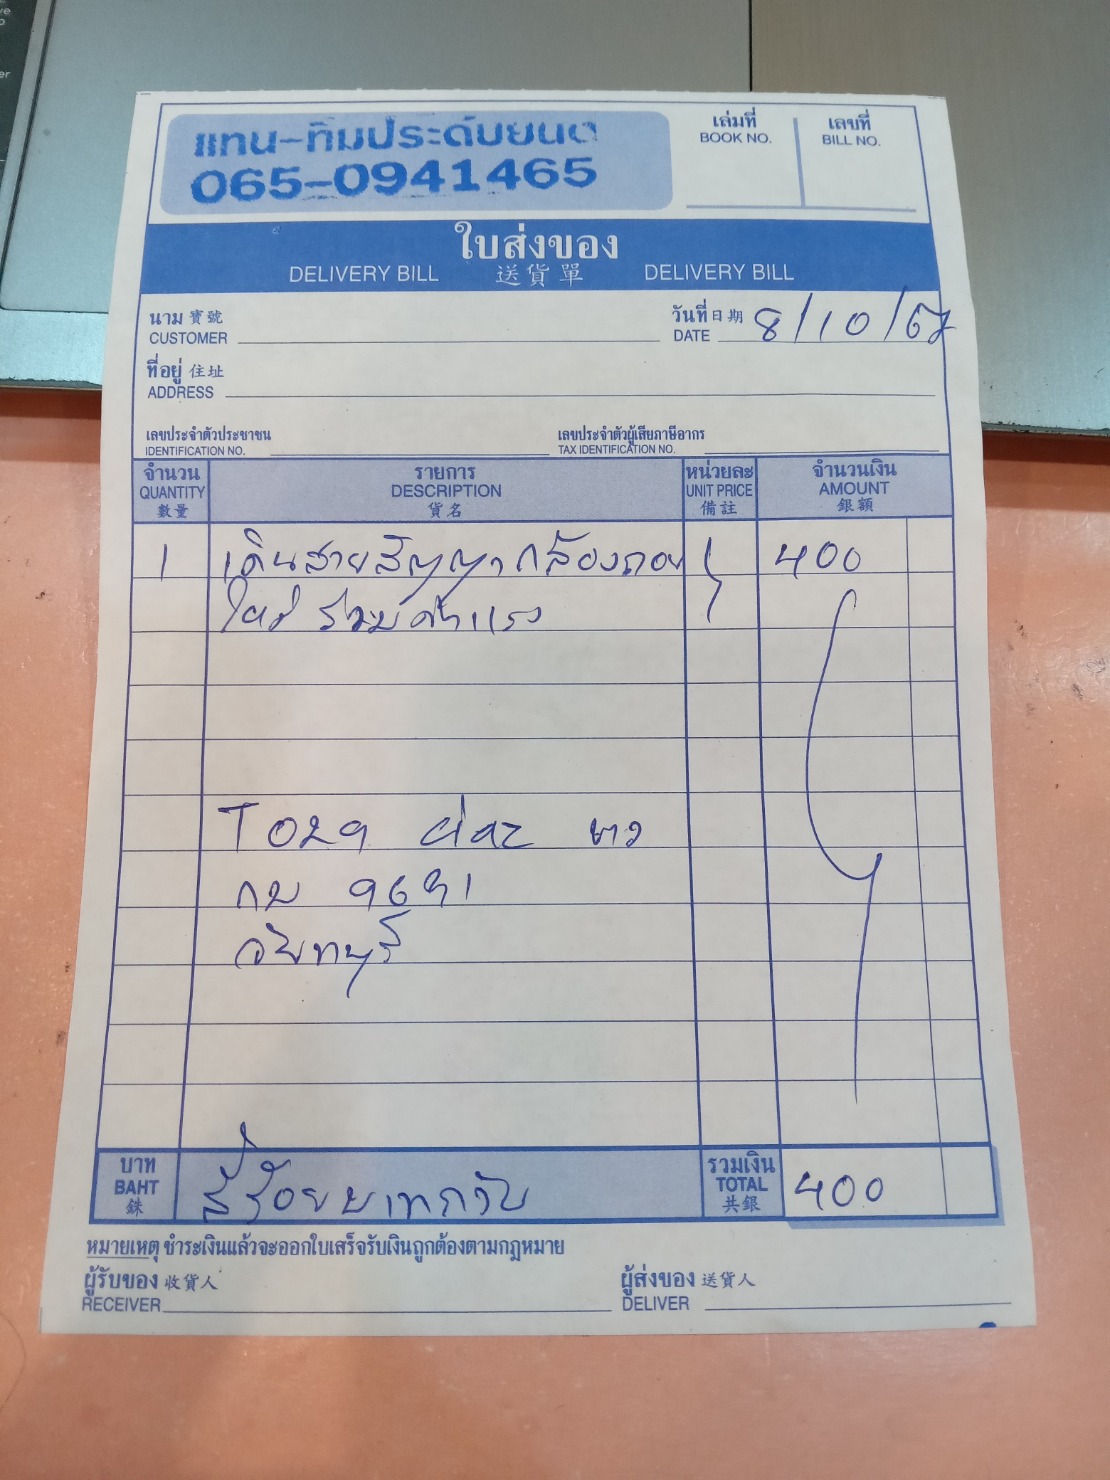 แทน-ทิมประดับยนต์
065-0941465
เล่มที่
BOOK NO.
เลขที่
BILL NO.
ใบส่งของ
DELIVERY BILL 送貨單 DELIVERY BILL
นาม 寶號
CUSTOMER
วันที่ 日期
DATE 8/10/67
ที่อยู่ 住址
ADDRESS
เลขประจำตัวประชาชน
IDENTIFICATION NO.
เลขประจำตัวผู้เสียภาษีอากร
TAX IDENTIFICATION NO.
จำนวน รายการ หน่วยละ จำนวนเงิน
QUANTITY DESCRIPTION UNIT PRICE AMOUNT
數量 貨名 備註 銀額
1 เดินสายสัญญาณกล้องถอย 400
ใหม่ รวมค่าแรง
กบ 9691
จันทบุรี
บาท
BAHT
銖
สี่ร้อยบาทถ้วน
รวมเงิน
TOTAL
共銀
400
หมายเหตุ ชำระเงินแล้วจะออกใบเสร็จรับเงินถูกต้องตามกฎหมาย
ผู้รับของ 收貨人
RECEIVER
ผู้ส่งของ 送貨人
DELIVER